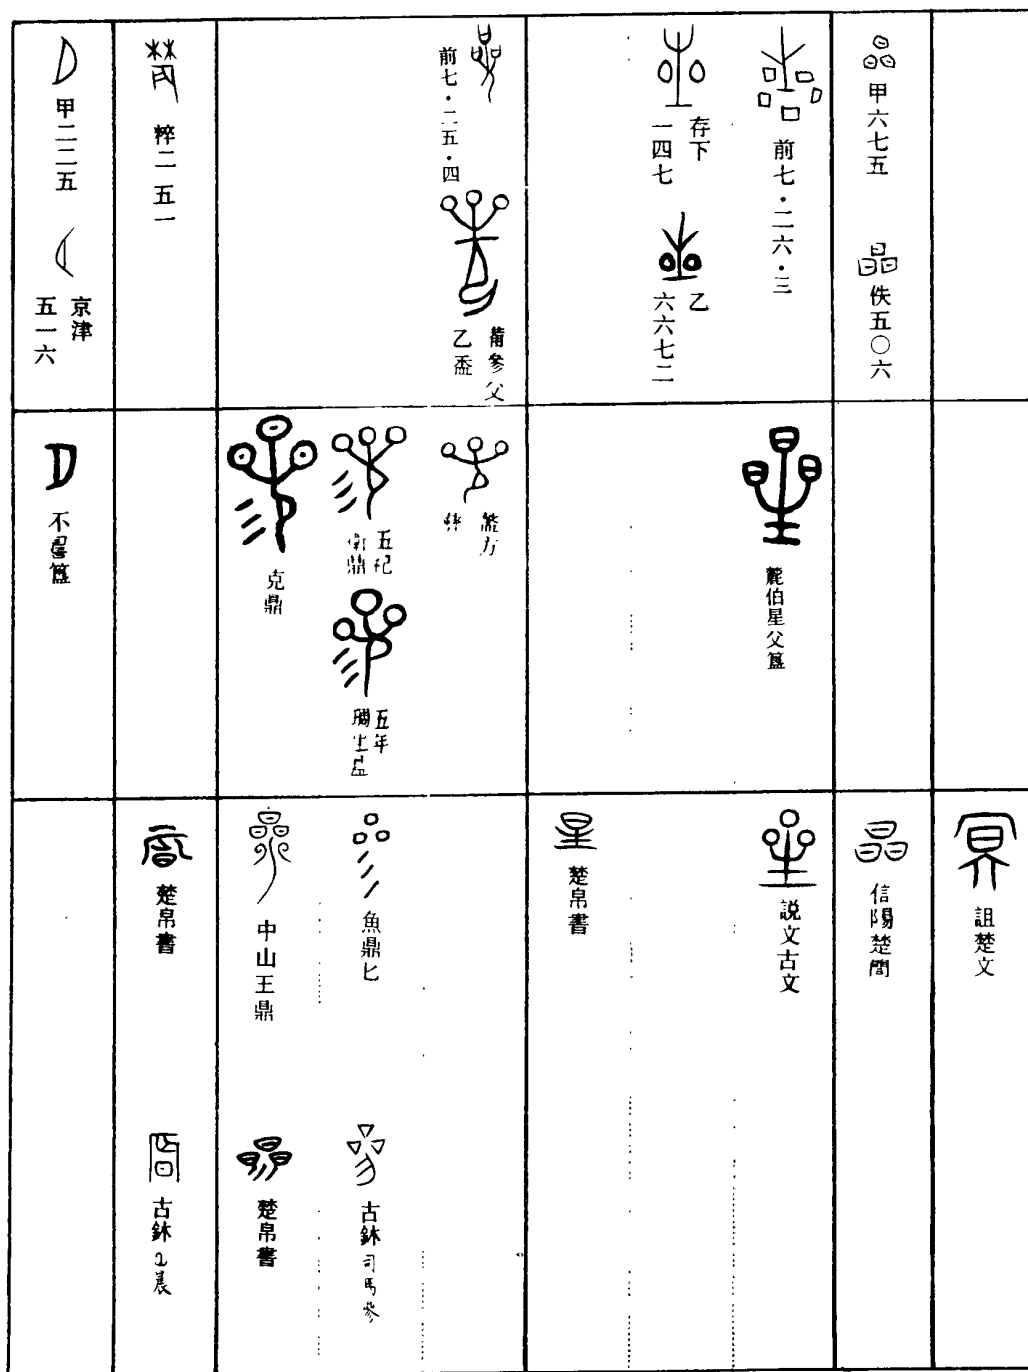 甲六七五
佚五〇六
前七·二六·三
存下
一四七
乙
六六七二
前七·二五·四
參父
乙盉
粹二五一
甲二二五
京津
五一六
麓伯星父簋
五祀
衛鼎
五年
克鼎
不簋
詛楚文
信陽楚簡
説文古文
楚帛書
魚鼎匕
古鉢司馬參
中山王鼎
楚帛書
楚帛書
古鉢